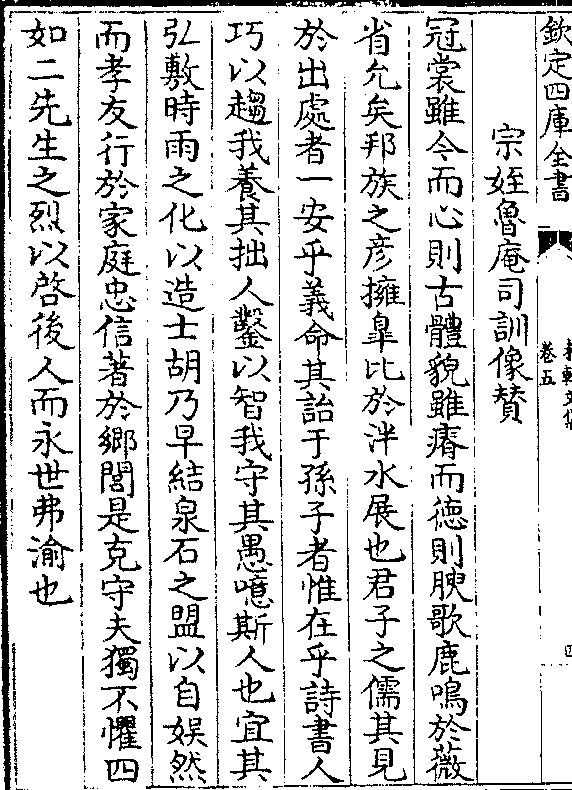 欽定四庫全書
卷五
宗姪魯庵司訓像賛
冠裳雖今而心則古體貌雖瘠而徳則腴歌鹿鳴於薇
省允矣邦族之彦擁臯比於泮水展也君子之儒其見
於出處者一安乎義命其詒于孫子者惟在乎詩書人
巧以趨我養其拙人鑿以智我守其愚噫斯人也宜其
弘敷時雨之化以造士胡乃早結泉石之盟以自娯然
而孝友行於家庭忠信著於鄉閭是克守夫獨不懼四
如二先生之烈以啓後人而永世弗渝也